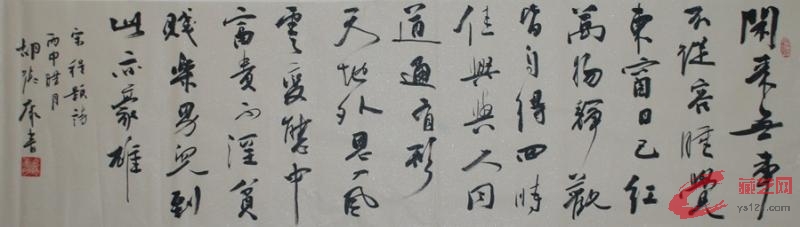 閑来无事
不從容睡覺
東窗日已红
萬物靜觀
皆自得四時
佳興與人同
道通有形
天地外思入風
雲變態中
富貴不淫貧
賤樂男兒到
此亦豪雄
宋程颢詩
丙申月
胡書